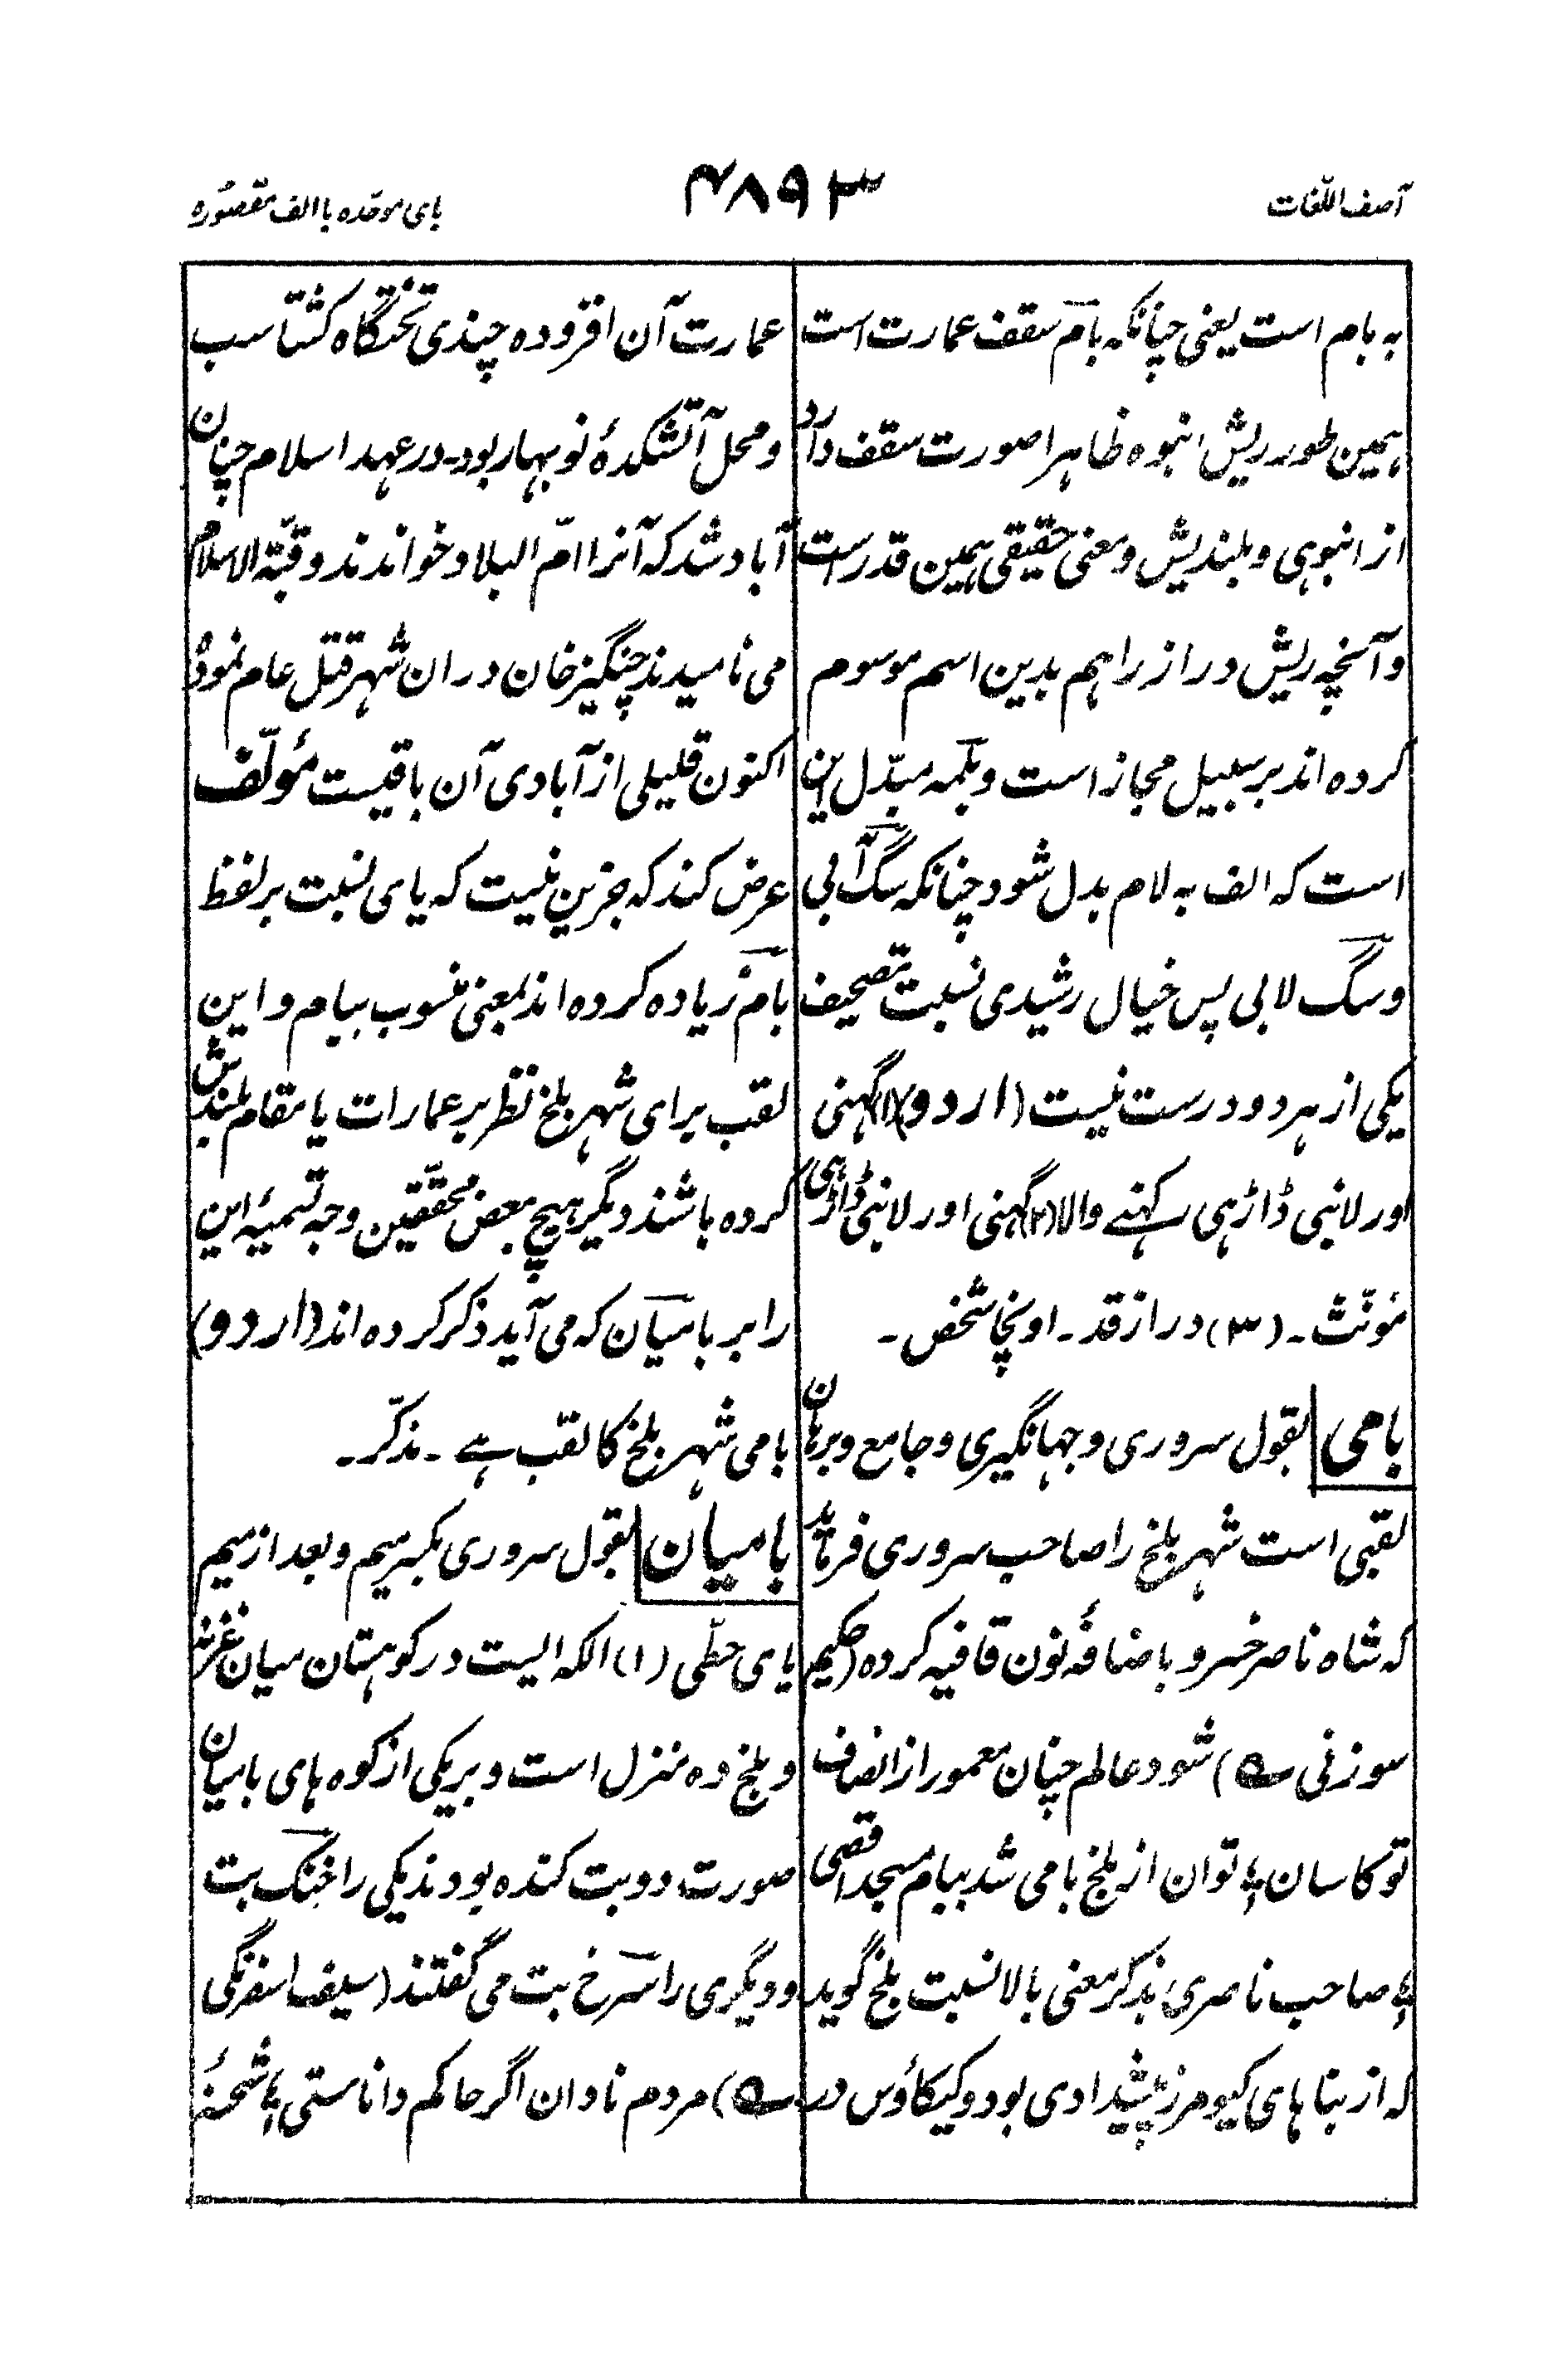 آصف اللغات
۴۸۹۳
بای موحّده با الف مقصُوره
به بام است یعنی چنانکه بام سقف عمارت است
ہمین طور ریش انبوہ ظاہرا صورت سقف دارد
از انبوہی و بلندیش و معنی حقیقی ہمین قدر است
و آنچہ ریش دراز را ہم بدین اسم موسوم
کردہ اند بر سبیل مجاز است و بلمہ مبدّل این
است کہ الف بہ لام بدل شود چنانکہ سگ آبی
و سگ لابی پس خیال رشیدی نسبت تصحیف
یکی از ہر دو درست نیست (اردو) (۱) گہنی
اور لانبی ڈاڑہی رکہنے والا (۲) گہنی اور لانبی ڈاڑہی
مؤنّث ۔ (۳) دراز قد ۔ اونچا شخص ۔
بامی بقول سروری و جہانگیری و جامع و برہان
لقبی است شہر بلخ را صاحب سروری فرماید
کہ شاہ ناصر خسرو باضافۂ نون قافیہ کردہ (حکیم
سوزنی ؎) شود عالم چنان معمور از انصاف
تو کاسان ؛ توان از بلخ بامی شد ببام مسجد اقصی
؛ صاحب ناصری بذکر معنی بالا نسبت بلخ گوید
کہ از بناہای کیومرز پیشدادی بود و کیکاؤس در
عمارت آن افزودہ چندی تختگاہ گشتاسب
و محل آتشکدۂ نوبہار بود۔ در عہد اسلام چنان
آباد شد کہ آنرا امّ البلاد خواندند و قبّۃ الاسلام
می نامیدند چنگیز خان دران شہر قتل عام نمود و
اکنون قلیلی از آبادی آن باقیست مؤلّف
عرض کند کہ جزین نیست کہ یای نسبت بر لفظ
بام زیادہ کردہ اند بمعنی منسوب ببام و این
لقب برای شہر بلخ نظر بر عمارات یا مقام بلندش
کردہ باشند دیگر ہیچ بعض محقّقین وجہ تسمیۂ این
را بر بامیان کہ می آید ذکر کردہ اند (اردو)
بامی شہر بلخ کا لقب ہے ۔ مذکّر ۔
بامیان بقول سروری بکسر میم و بعد از میم
یای حطّی (۱) الکہ ایست در کوہستان میان غزنہ
و بلخ دہ منزل است و بر یکی از کوہ ہای بامیان
صورت دو بت کندہ بودند یکی را خنگ بت
و دیگری را سرخ بت می گفتند (سیف اسفرنگی
؎) مردم نادان اگر حاکم داناستی ؛ شحنۂ